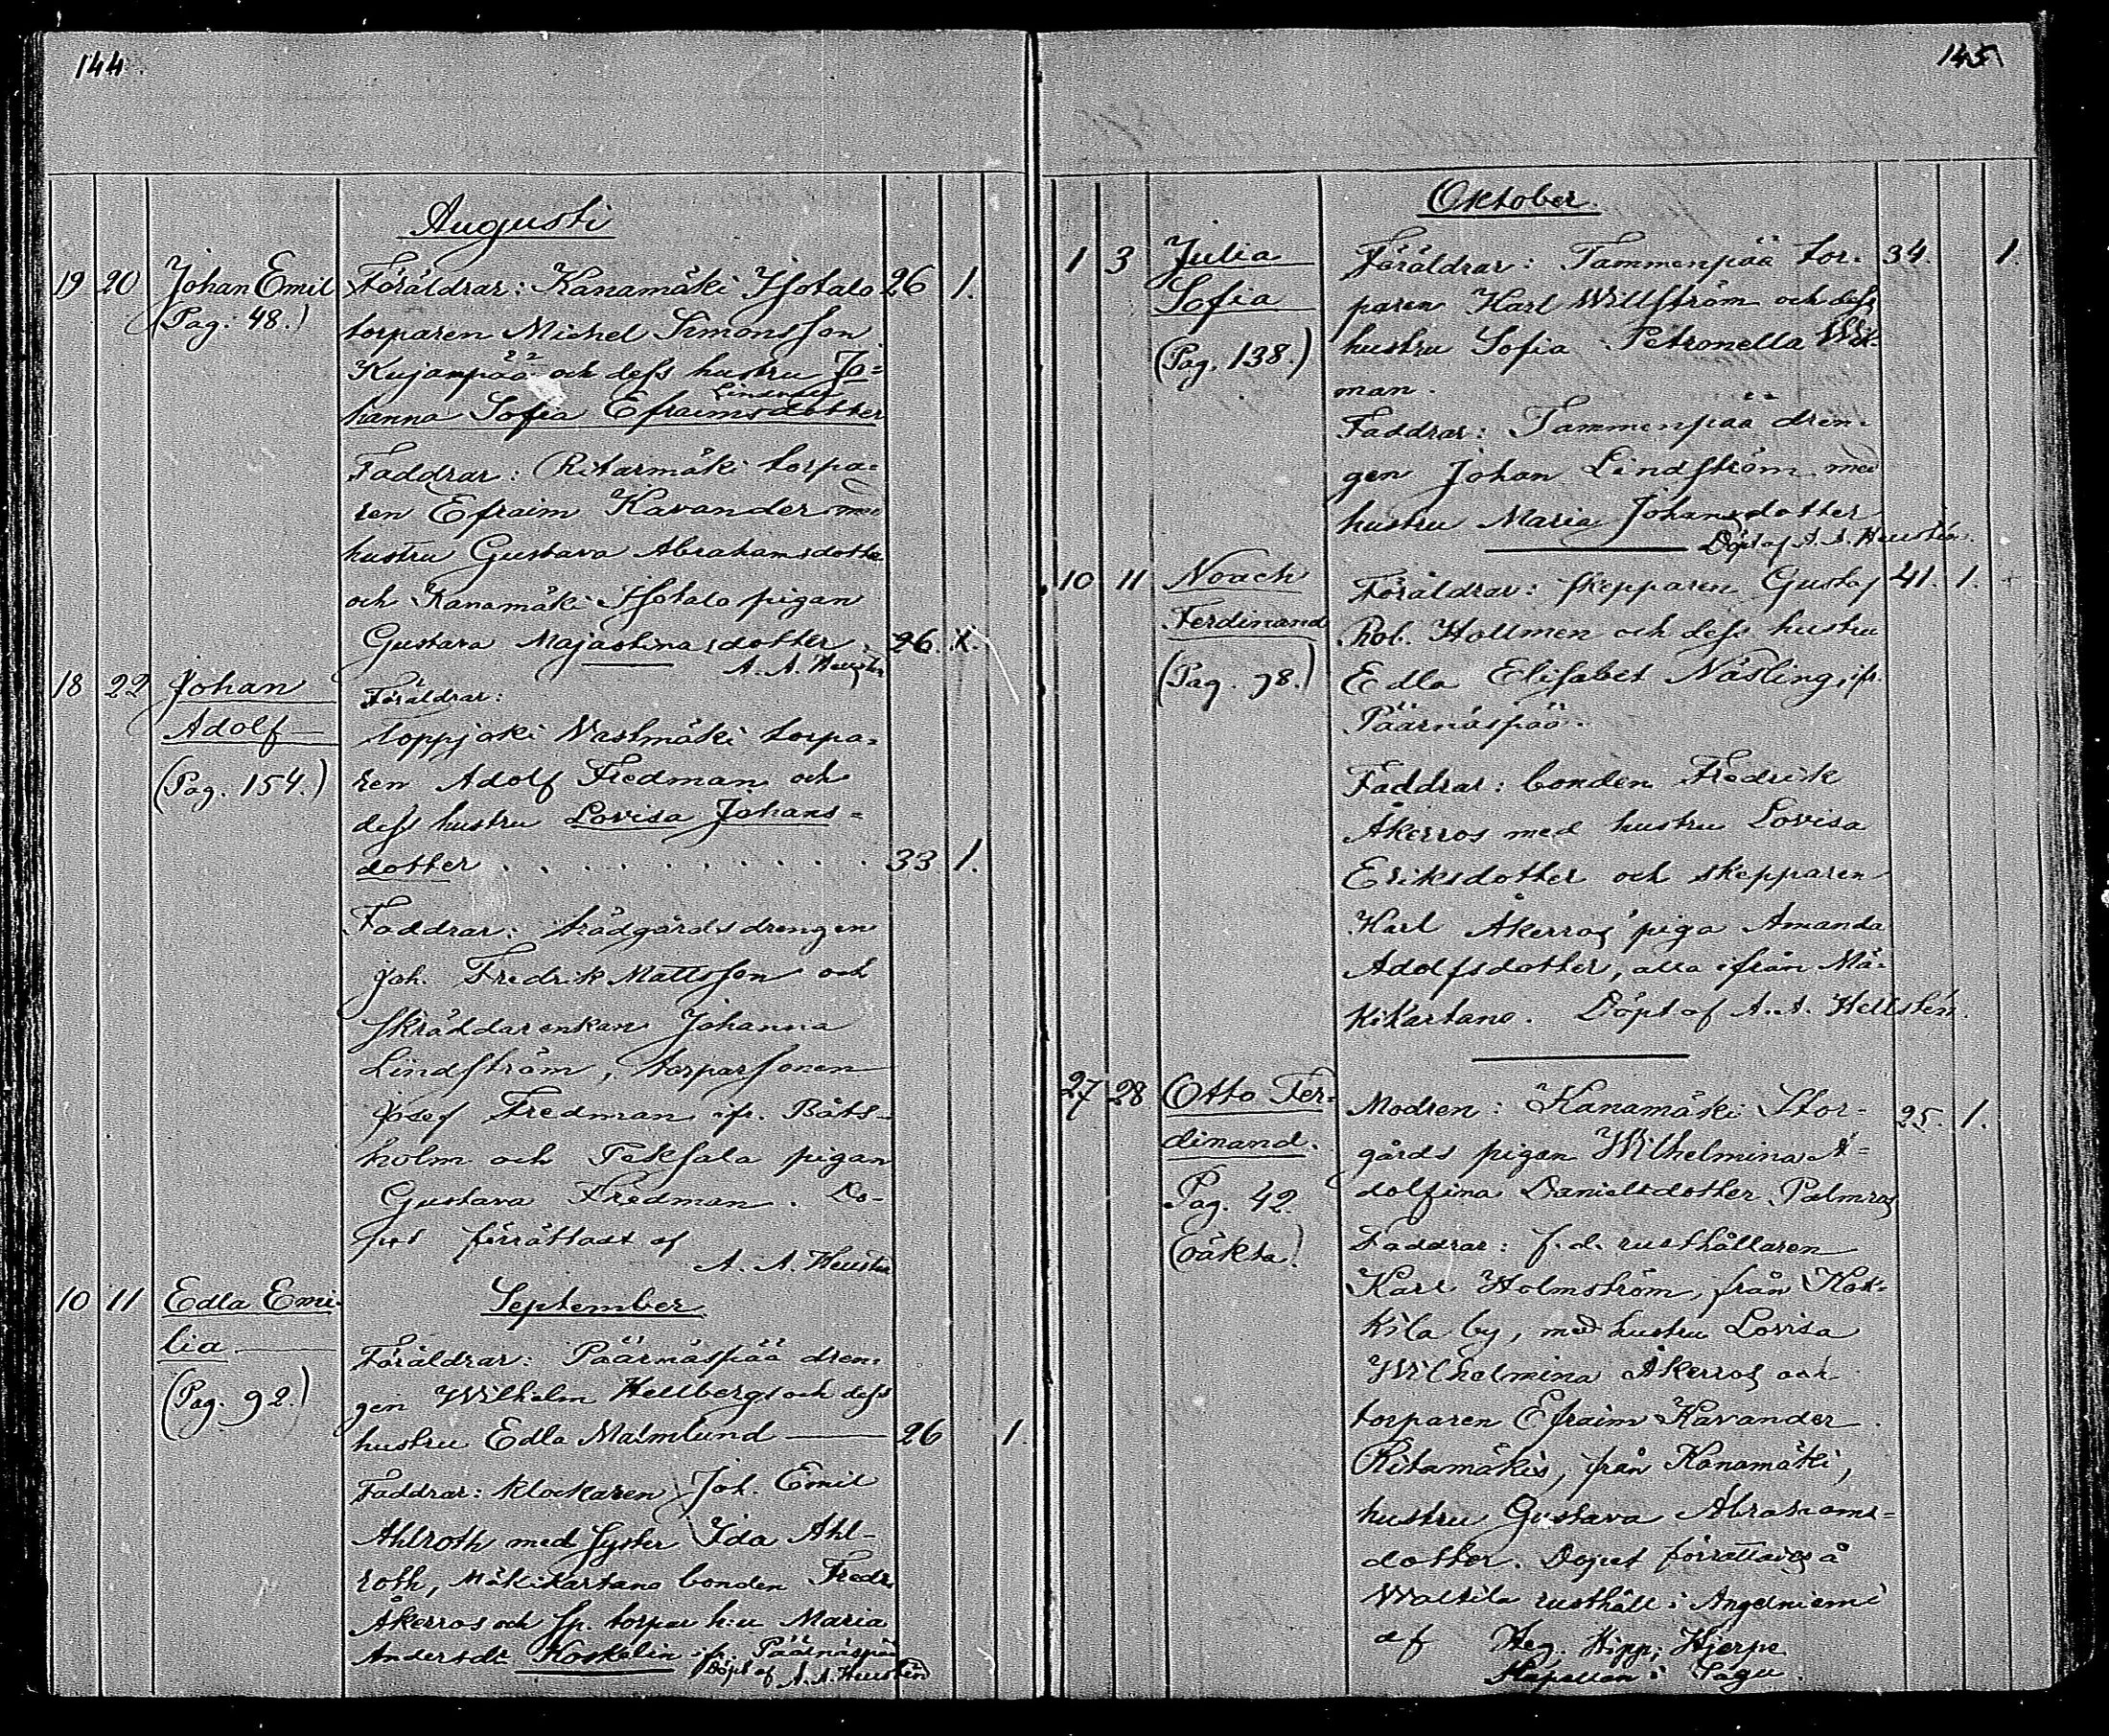 144.
Augusti
19 20 Johan Emil Föräldrar: Kanamäki Isotalo 26 1.
(Pag. 48.) torparen Michel Simonsson
Kujanpää och dess hustru Jo=
Lindroos
hanna Sofia Efraimsdotter
Faddrar: Ritarmäki torpa=
ren Efraim Kavander med
hustru Gustava Abrahamsdotter
och Kanamäki Isotalo pigan
Gustava Majastinasdotter. 26. 1.
A. A. Hellstén
18 22 Johan Föräldrar:
Adolf Toppjoki Wastmäki torpa=
(Pag. 154.) ren Adolf Fredman och
dess hustru Lovisa Johans=
dotter . . . . . . . . . . . 33 1.
Faddrar: trädgårdsdrengen
Joh. Fredrik Mattsson och
skräddarenkan Johanna
Lindström, torparsonen
Josef Fredman ifr. Båts-
holm och Teksala pigan
Gustava Fredman. Do-
pet förrättadt af
A. A. Hellstén
10 11 Edla Emi- September
lia Föräldrar: Päärnäspää dren-
(Pag. 92.) gen Wilhelm Hellberg och dess
hustru Edla Malmlund 26 1.
Faddrar: klockaren Joh. Emil
Ahlroth med syster Ida Ahl-
roth, Mäkikartano bonden Fredr.
Åkerros och sp. torpar h:u Maria
Andersdr Koskelin ifr. Päärnäspää
Döpt af A. A. Hellstén
145
Oktober.
1 3 Julia Föräldrar: Tammenpää tor- 34. 1.
Sofia paren Karl Willström och dess
(Pag. 138.) hustru Sofia Petronella Wik-
man.
Faddrar: Tammenpää dren-
gen Johan Lindström med
hustru Maria Johansdotter
Döpt af A. A. Hellstén.
10 11 Noach Föräldrar: skepparen Gustaf 41. 1.
Ferdinand Rob. Hollmen och dess hustru
(Pag. 78.) Edla Elisabet Näsling, ifr.
Päärnäspää.
Faddrar: bonden Fredrik
Åkerros med hustru Lovisa
Eriksdotter och skepparen
Karl Åkerros' piga Amanda
Adolfsdotter, alla ifrån Mä-
kikartano. Döpt af A. A. Hellstén.
27 28 Otto Fer- Modren: Kanamäki Stor- 25. 1.
dinand. gårds pigan Wilhelmina A-
Pag. 42. dolfina Danielsdotter Palmros
(oäkta) Faddrar: f.d. rusthållaren
Karl Holmström, från Kok-
kila by, med hustru Lovisa
Wilhelmina Åkerros och
torparen Efraim Kavander
Ritamäkis, från Kanamäki,
hustru Gustava Abrahams=
dotter. Dopet förrättades å
Waltila rusthåll i Angelniemi
af Hjerpe
Kapellan i Sagu.